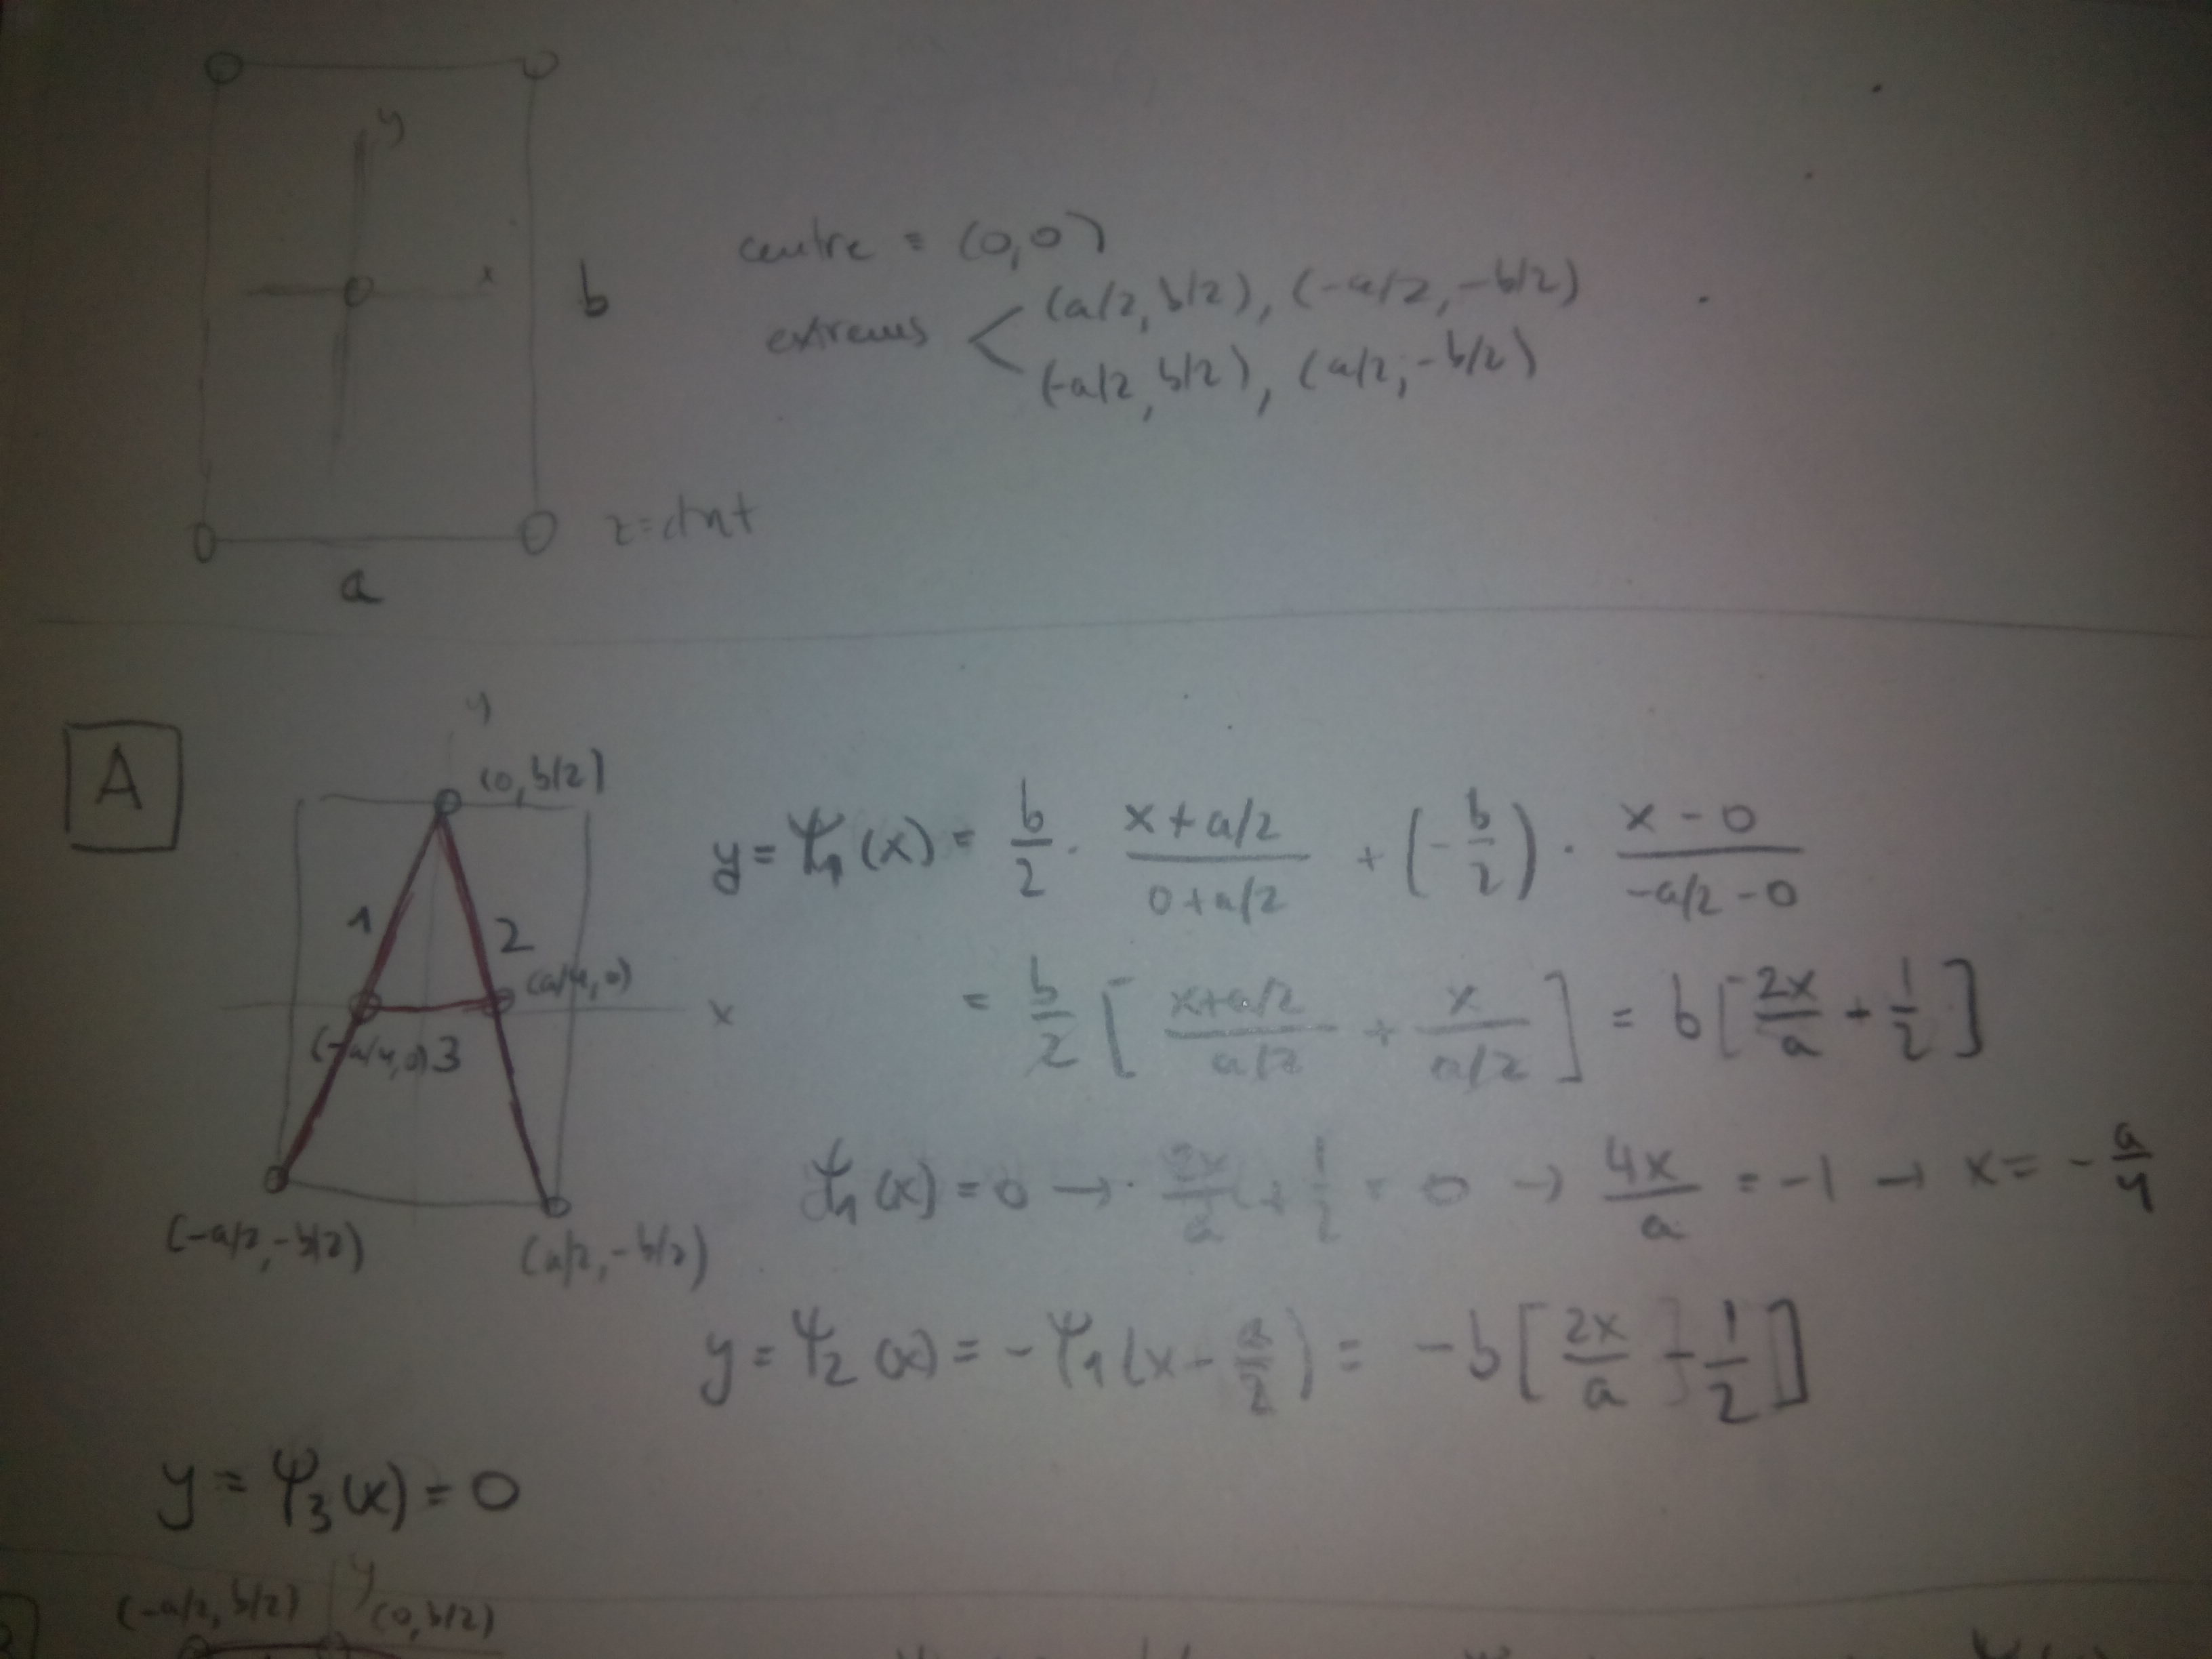 y
x
b
centre = (0,0)
extrems < (a/2, b/2), (-a/2, -b/2)
(-a/2, b/2), (a/2, -b/2)
z=ctnt
a
A
y
(0, b/2)
1
2
(a/4, 0)
x
(-a/4, 0) 3
(-a/2, -b/2)
(a/2, -b/2)
y = Ψ₁(x) = b/2 · (x + a/2)/(0 + a/2) + (-b/2) · (x - 0)/(-a/2 - 0)
= b/2 [ (x+a/2)/(a/2) + x/(a/2) ] = b [ 2x/a + 1/2 ]
Ψ₁(x) = 0 → 2x/a + 1/2 = 0 → 4x/a = -1 → x = - a/4
y = Ψ₂(x) = -Ψ₁(x - a/2) = -b [ 2x/a - 1/2 ]
y = Ψ₃(x) = 0
y
(-a/2, b/2)
(0, b/2)